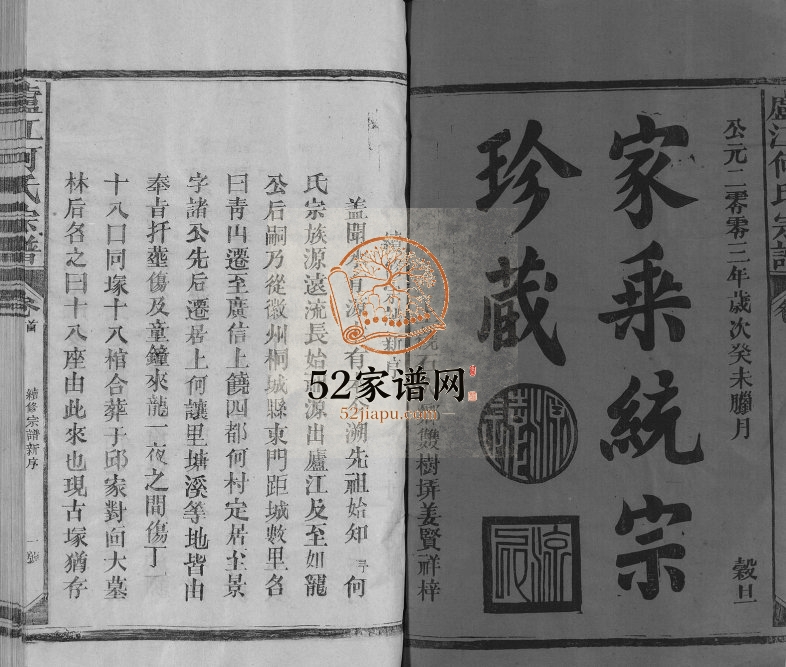 廬江何氏宗譜
公元二零零三年歲次癸未臘月
穀旦
家乘統宗
珍藏
雙樹垪姜賢祥梓
新序
蓋聞水有源 有 溯先祖始知 何
氏宗族源遠流長始 源出廬江及至如龍
公后嗣乃從徽州桐城縣東門距城數里名
曰青山遷至廣信上饒四都何村定居至景
字諸公先后遷居上何讓里塘溪等地皆由
奉旨扦塟傷及童鐘來龍一夜之間傷丁
十八口同塚十八棺合葬于邱家對面大墓
林后名之曰十八座由此來也現古塚猶存
廬江何氏宗譜
卷首
續修宗譜新序
一號
52家谱网
52jiapu.com